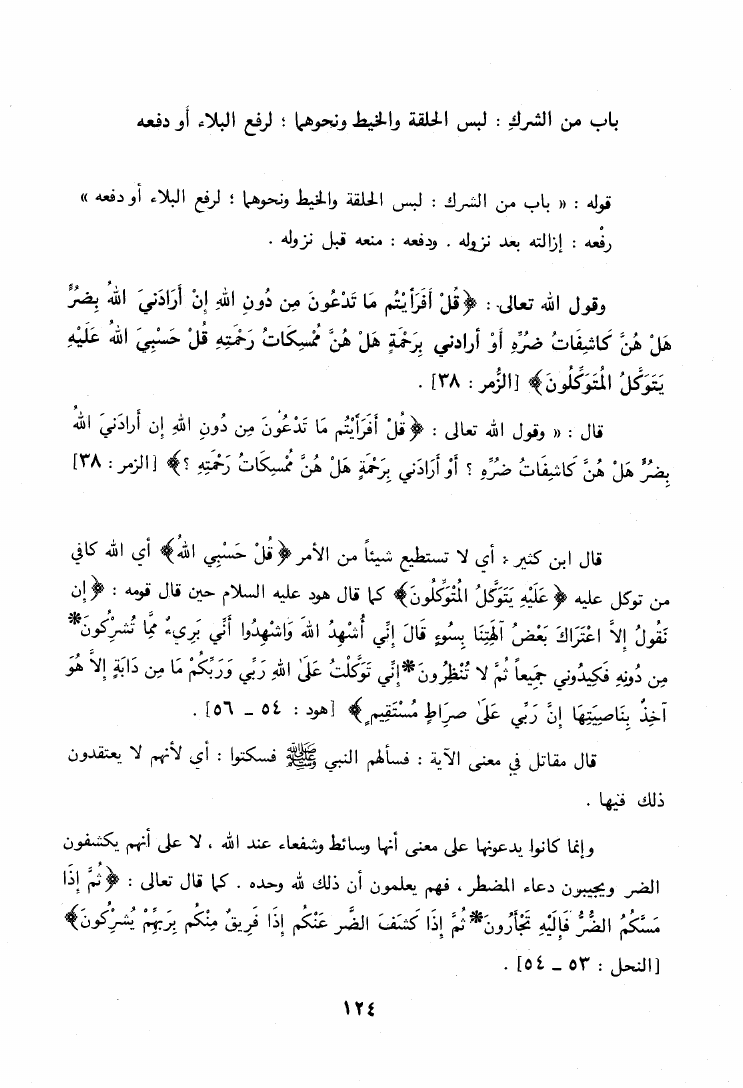 باب من الشرك : لبس الحلقة والخيط ونحوهما ؛ لرفع البلاء أو دفعه
قوله : « باب من الشرك : لبس الحلقة والخيط ونحوهما ؛ لرفع البلاء أو دفعه »
رفْعه : إزالته بعد نزوله . ودفعه : منعه قبل نزوله .
وقول الله تعالى : ﴿قُلْ أَفَرَأَيْتُم مَا تَدْعُونَ مِن دُونِ اللهِ إِنْ أَرَادَنيَ اللهُ بِضُرٍّ
هَلْ هُنَّ كَاشِفَاتُ ضُرِّهِ أَوْ أرادني بِرَحْمَةٍ هَلْ هُنَّ مُمْسِكَاتُ رَحْمَتِهِ قُلْ حَسْبِيَ اللهُ عَلَيْهِ
يَتَوَكَّلُ المُتَوَكِّلُونَ﴾ [الزُّمر : ٣٨] .
قال : « وقول الله تعالى : ﴿قُلْ أَفَرَأَيْتُم مَا تَدْعُونَ مِن دُونِ اللهِ إن أَرادَنيَ اللهُ
بِضُرٍّ هَلْ هُنَّ كَاشِفَاتُ ضُرِّهِ ؟ أَوْ أَرَادَني بِرَحْمَةٍ هَلْ هُنَّ مُمْسِكَاتُ رَحْمَتِهِ ؟﴾ [الزمر : ٣٨]
قال ابن كثير : أي لا تستطيع شيئاً من الأمر ﴿قُلْ حَسْبِي اللهُ﴾ أي الله كافي
من توكل عليه ﴿عَلَيْهِ يَتَوَكَّلُ المُتَوَكِّلُونَ﴾ كما قال هود عليه السلام حين قال قومه : ﴿إن
نَقُولُ إلاَّ اعْتَرَاكَ بَعْضُ آلهَتِنَا بِسُوءٍ قَالَ إِنِّي أُشْهِدُ اللهَ وَاشْهِدُوا أَنِّي بَرِيءٌ مِمَّا تُشْرِكُونَ*
مِن دُونِهِ فَكِيدُوني جَمِيعاً ثُمَّ لا تُنْظِرُونَ*إِنِّي تَوَكَّلْتُ عَلَى اللهِ رَبِّي وَرَبِّكُمْ مَا مِن دَابَةٍ إلاَّ هُوَ
آخِذٌ بِنَاصِيَتِهَا إِنَّ رَبِّي عَلَى صِرَاطٍ مُسْتَقِيمٍ﴾ [هود : ٥٤ ـ ٥٦] .
قال مقاتل في معنى الآية : فسألهم النبي ﷺ فسكتوا : أي لأنهم لا يعتقدون
ذلك فيها .
وإنما كانوا يدعونها على معنى أنها وسائط وشفعاء عند الله ، لا على أنهم يكشفون
الضر ويجيبون دعاء المضطر ، فهم يعلمون أن ذلك لله وحده . كما قال تعالى : ﴿ثُمَّ إذَا
مَسَّكُمُ الضُّرُّ فَإِلَيْهِ تَجْأَرُونَ*ثُمَّ إذَا كَشَفَ الضَّر عَنْكُم إذَا فَرِيقٌ مِنْكُم بِرَبِّهِمْ يُشرِكُونَ﴾
[النحل : ٥٣ ـ ٥٤] .
١٢٤